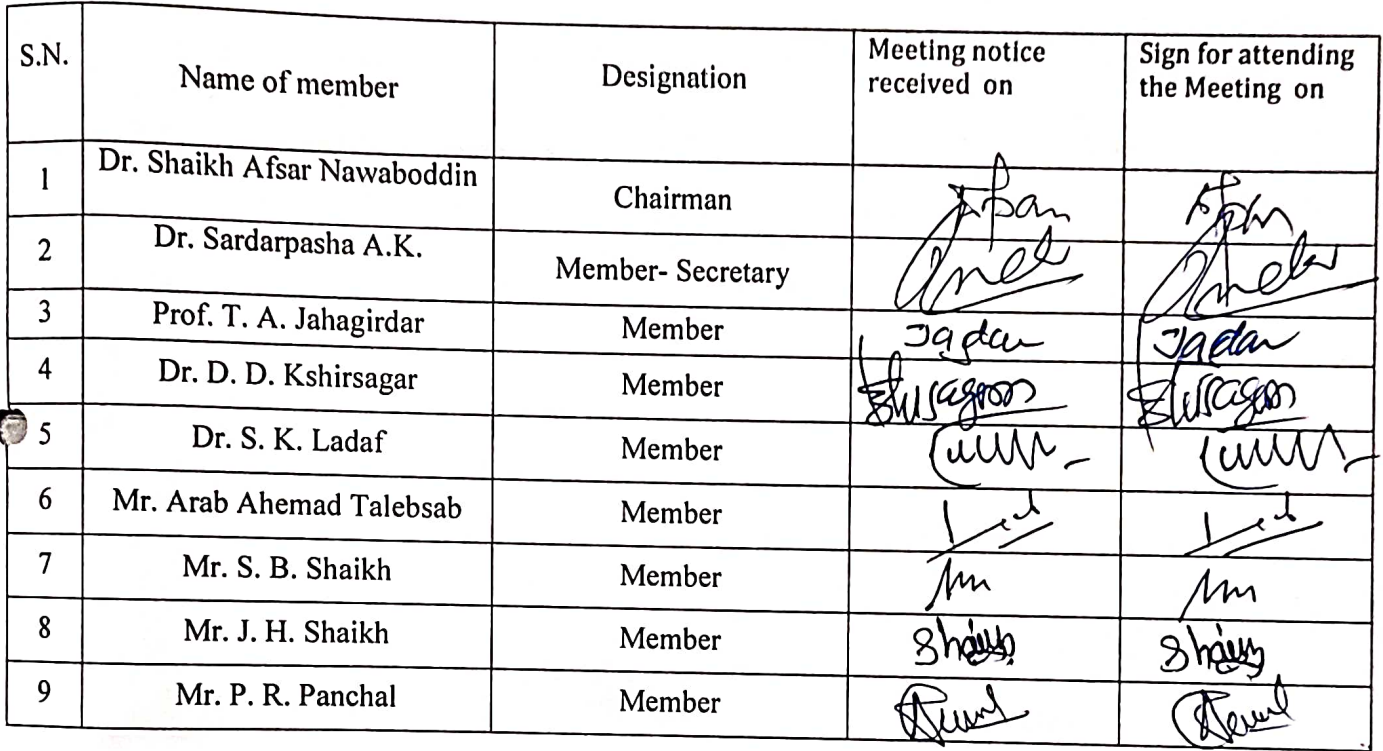 S.N. Name of member Designation Meeting notice received on Sign for attending the Meeting on
1 Dr. Shaikh Afsar Nawaboddin Chairman
2 Dr. Sardarpasha A.K. Member- Secretary
3 Prof. T. A. Jahagirdar Member
4 Dr. D. D. Kshirsagar Member
5 Dr. S. K. Ladaf Member
6 Mr. Arab Ahemad Talebsab Member
7 Mr. S. B. Shaikh Member
8 Mr. J. H. Shaikh Member
9 Mr. P. R. Panchal Member